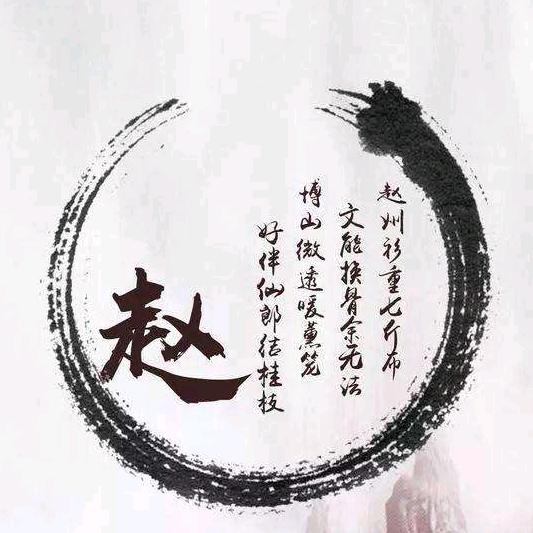 赵州衫重七斤布
文能换骨余无法
博山微透暖薰笼
好伴仙郎结桂枝
赵